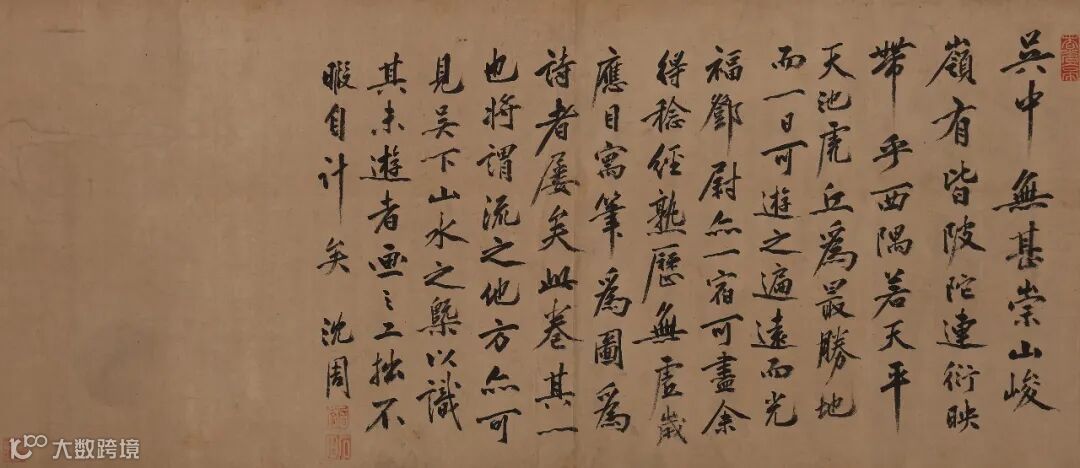 吳中無甚崇山峻
嶺有皆陂陀連衍映
帶乎西隅若天平
天池虎丘爲最勝地
而一日可遊之遍遠而光
福鄧尉亦一宿可盡余
得稔經熟歷無虛歲
應目寓筆爲圖爲
詩者屢矣此卷其一
也將謂流之他方亦可
見吳下山水之槩以識
其未遊者画之工拙不
暇自計矣 沈周
大数跨境